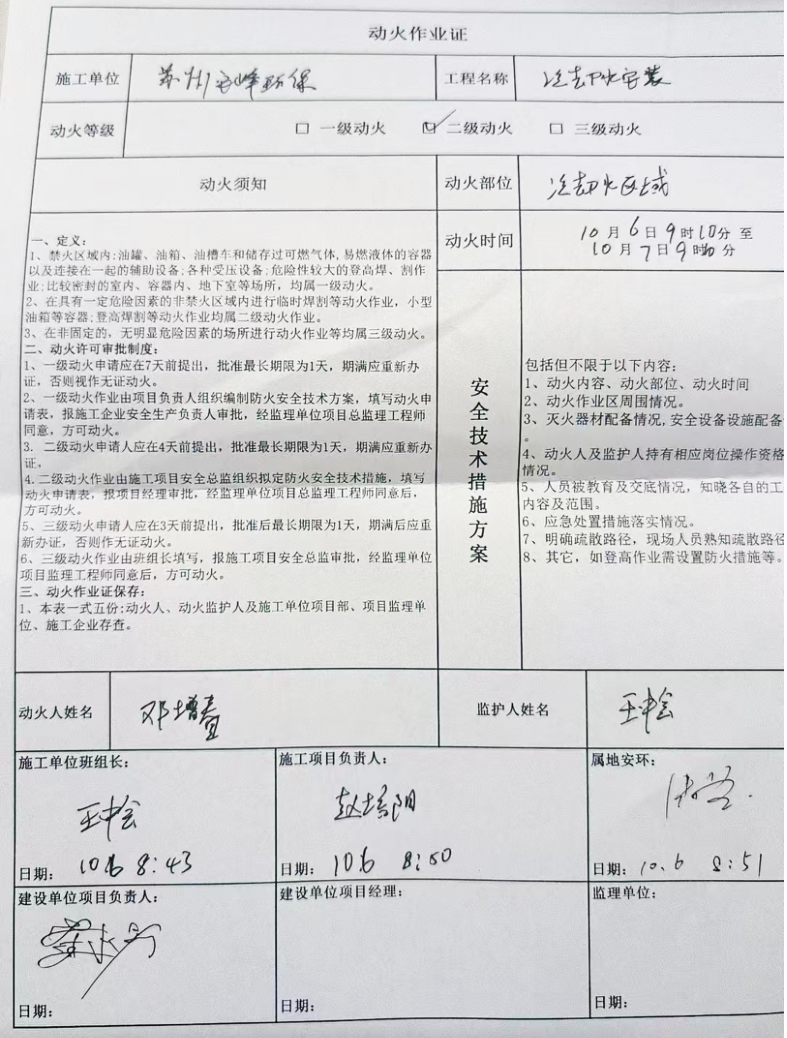 动火作业证
施工单位 苏州 峰环保 工程名称 冷却水安装
动火等级 □ 一级动火 ☑ 二级动火 □ 三级动火
动火须知 动火部位 冷却水区域
动火时间 10月6日9时10分 至
10月7日9时 分
一、定义：
1、禁火区域内:油罐、油箱、油槽车和储存过可燃气体,易燃液体的容器
以及连接在一起的辅助设备;各种受压设备;危险性较大的登高焊、割作
业;比较密封的室内、容器内、地下室等场所，均属一级动火。
2、在具有一定危险因素的非禁火区域内进行临时焊割等动火作业，小型
油箱等容器;登高焊割等动火作业均属二级动火作业。
3、在非固定的，无明显危险因素的场所进行动火作业等均属三级动火。
二、动火许可审批制度：
1、一级动火申请应在7天前提出，批准最长期限为1天，期满应重新办
证，否则视作无证动火。
2、一级动火作业由项目负责人组织编制防火安全技术方案，填写动火申
请表，报施工企业安全生产负责人审批，经监理单位项目总监理工程师
同意，方可动火。
3. 二级动火申请人应在4天前提出，批准最长期限为1天，期满应重新办
证，
4.二级动火作业由施工项目安全总监组织拟定防火安全技术措施，填写
动火申请表，报项目经理审批，经监理单位项目总监理工程师同意后，
方可动火。
5、三级动火申请人应在3天前提出，批准后最长期限为1天，期满后应重
新办证，否则作无证动火。
6、三级动火作业由班组长填写，报施工项目安全总监审批，经监理单位
项目监理工程师同意后，方可动火。
三、动火作业证保存：
1、本表一式五份:动火人、动火监护人及施工单位项目部、项目监理单
位、施工企业存查。
安全技术措施方案
包括但不限于以下内容：
1、动火内容、动火部位、动火时间
2、动火作业区周围情况。
3、灭火器材配备情况,安全设备设施配备
。
4、动火人及监护人持有相应岗位操作资格
情况。
5、人员被教育及交底情况，知晓各自的工
内容及范围。
6、应急处置措施落实情况。
7、明确疏散路径，现场人员熟知疏散路径
8、其它，如登高作业需设置防火措施等。
动火人姓名 邓增 监护人姓名 王中会
施工单位班组长： 施工项目负责人： 属地安环：
王中会 赵培阳
日期： 10.6 8:43 日期： 10.6 8:50 日期： 10.6 8:51
建设单位项目负责人： 建设单位项目经理： 监理单位：
日期： 日期： 日期：